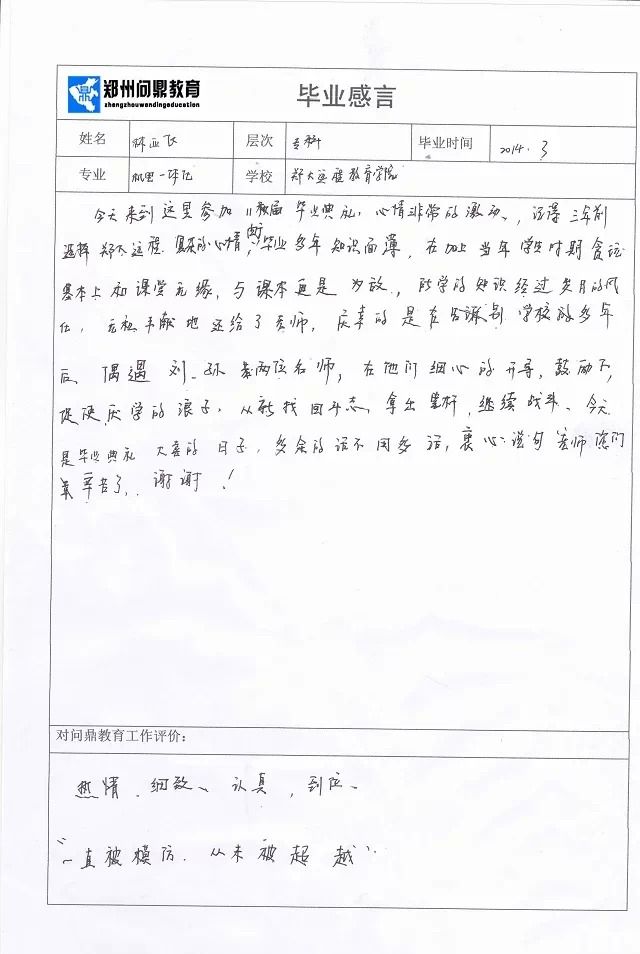 郑州问鼎教育
zhengzhouwendingeducation
毕业感言
姓名 林亚飞 层次 专科 毕业时间 2014.3
专业 机电一体化 学校 郑大远程教育学院
今天来到这里参加 毕业典礼,心情非常的激动、,记得三年前
选择郑大远程 时的心情,毕业多年知识面薄,在加上当年学生时期贪玩
基本上和课堂无缘,与课本更是为敌,所学的知识经过岁月的风
化,无私奉献地还给了老师,庆幸的是在告辞别学校的多年
后 偶遇 刘、孙 两位名师,在他们细心的开导,鼓励下,
促使厌学的浪子,从新找回斗志,拿出 ,继续战斗、今天
是毕业典礼 大喜的日子,多余的话不用多话,衷心说句 老师您们
辛苦了,谢谢!
对问鼎教育工作评价:
热情、细致、认真,到位、
“一直被模仿.从未被超越”.